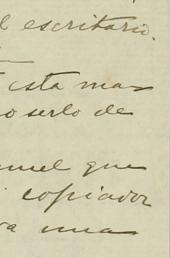 l escritorio.
esta mas
o serlo de
uel que
copiador
va una